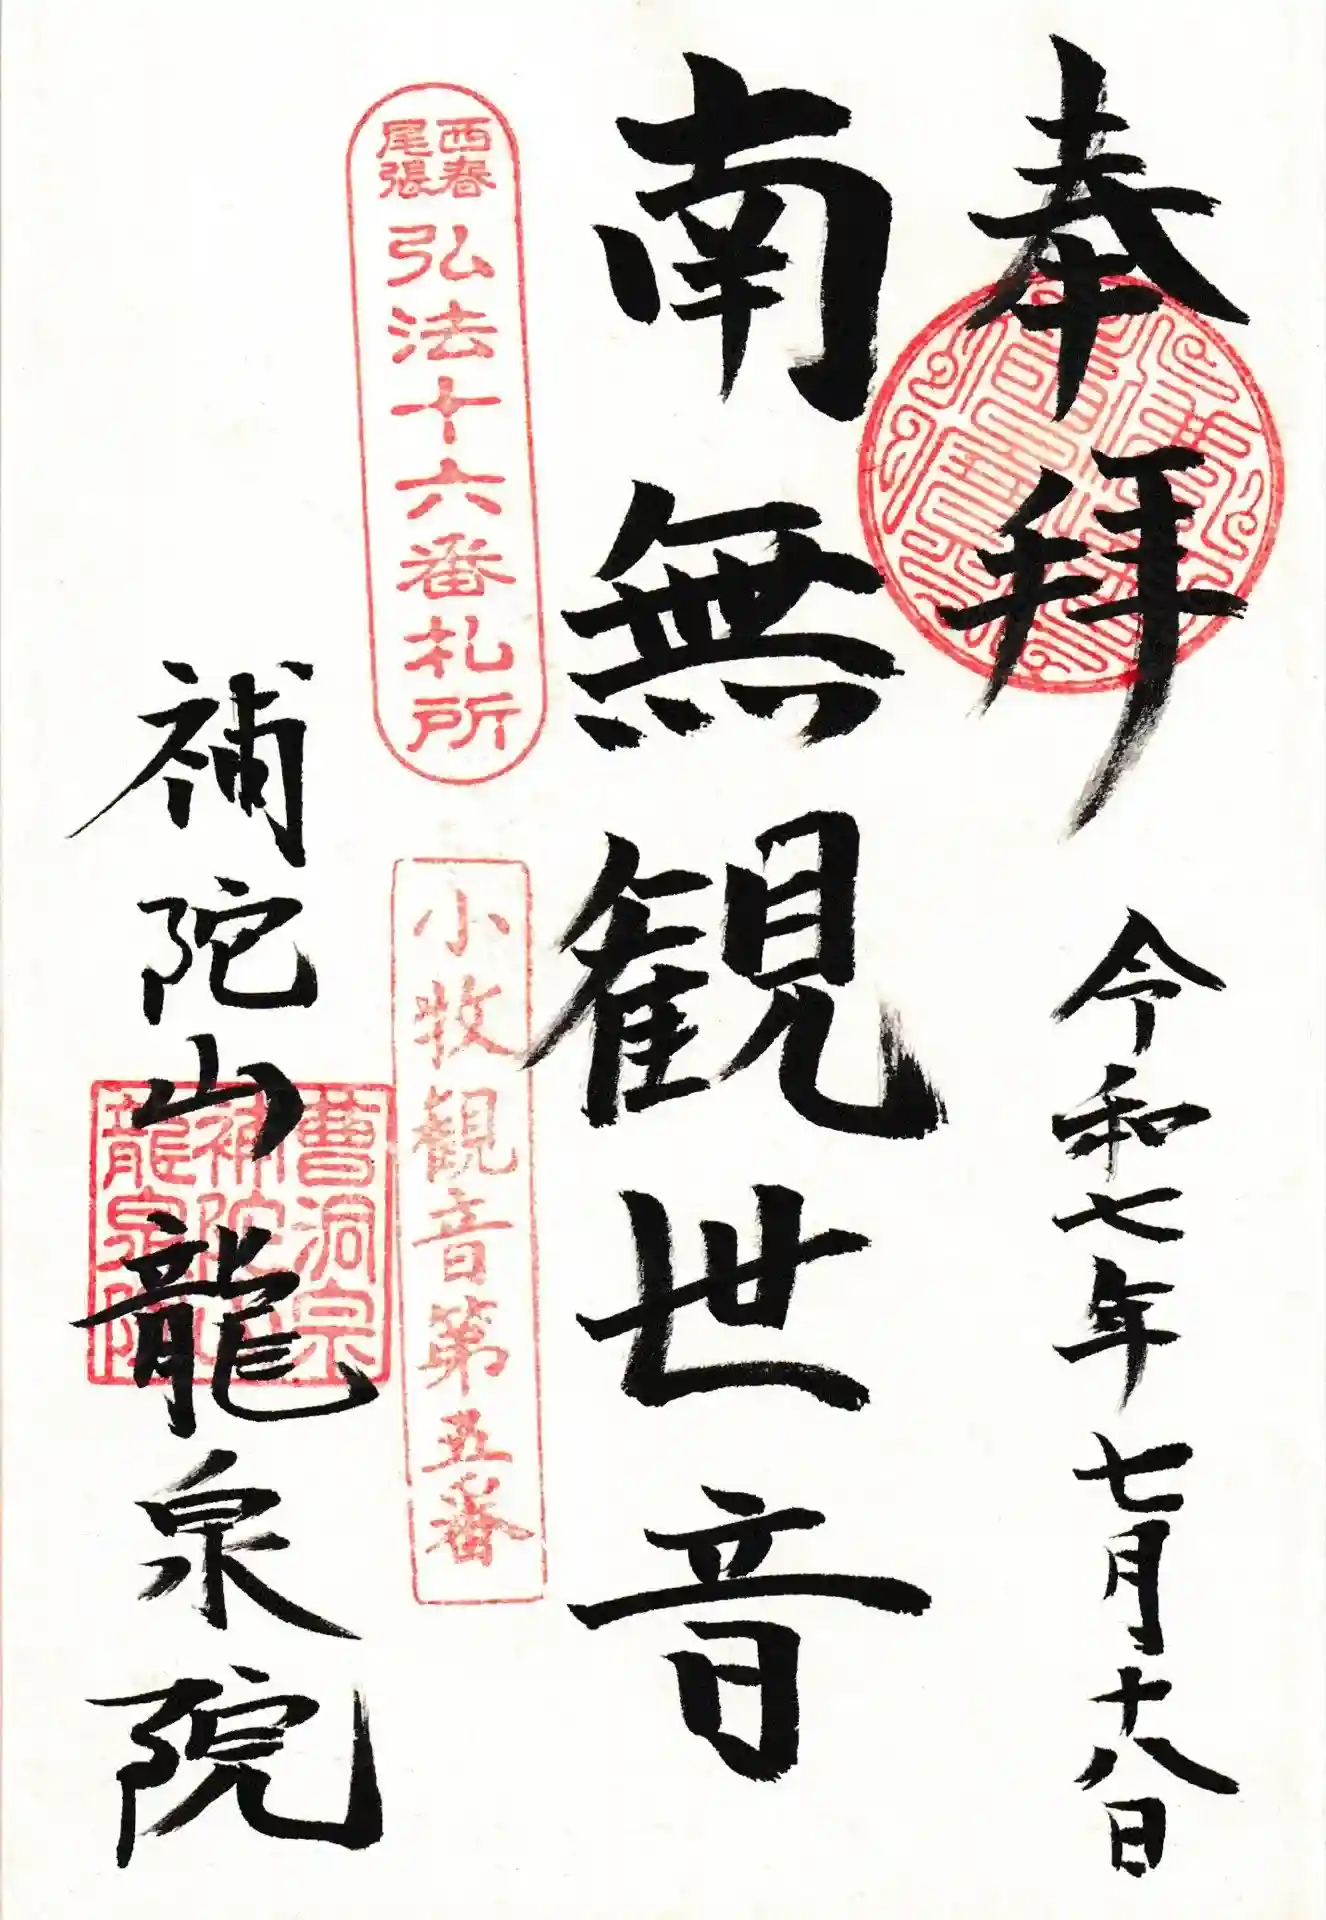 奉拜
令和七年七月十八日
南無観世音
西春
尾張
弘法十六番札所
小牧観音第五番
補陀山龍泉院
曹洞宗
補陀山
龍泉院